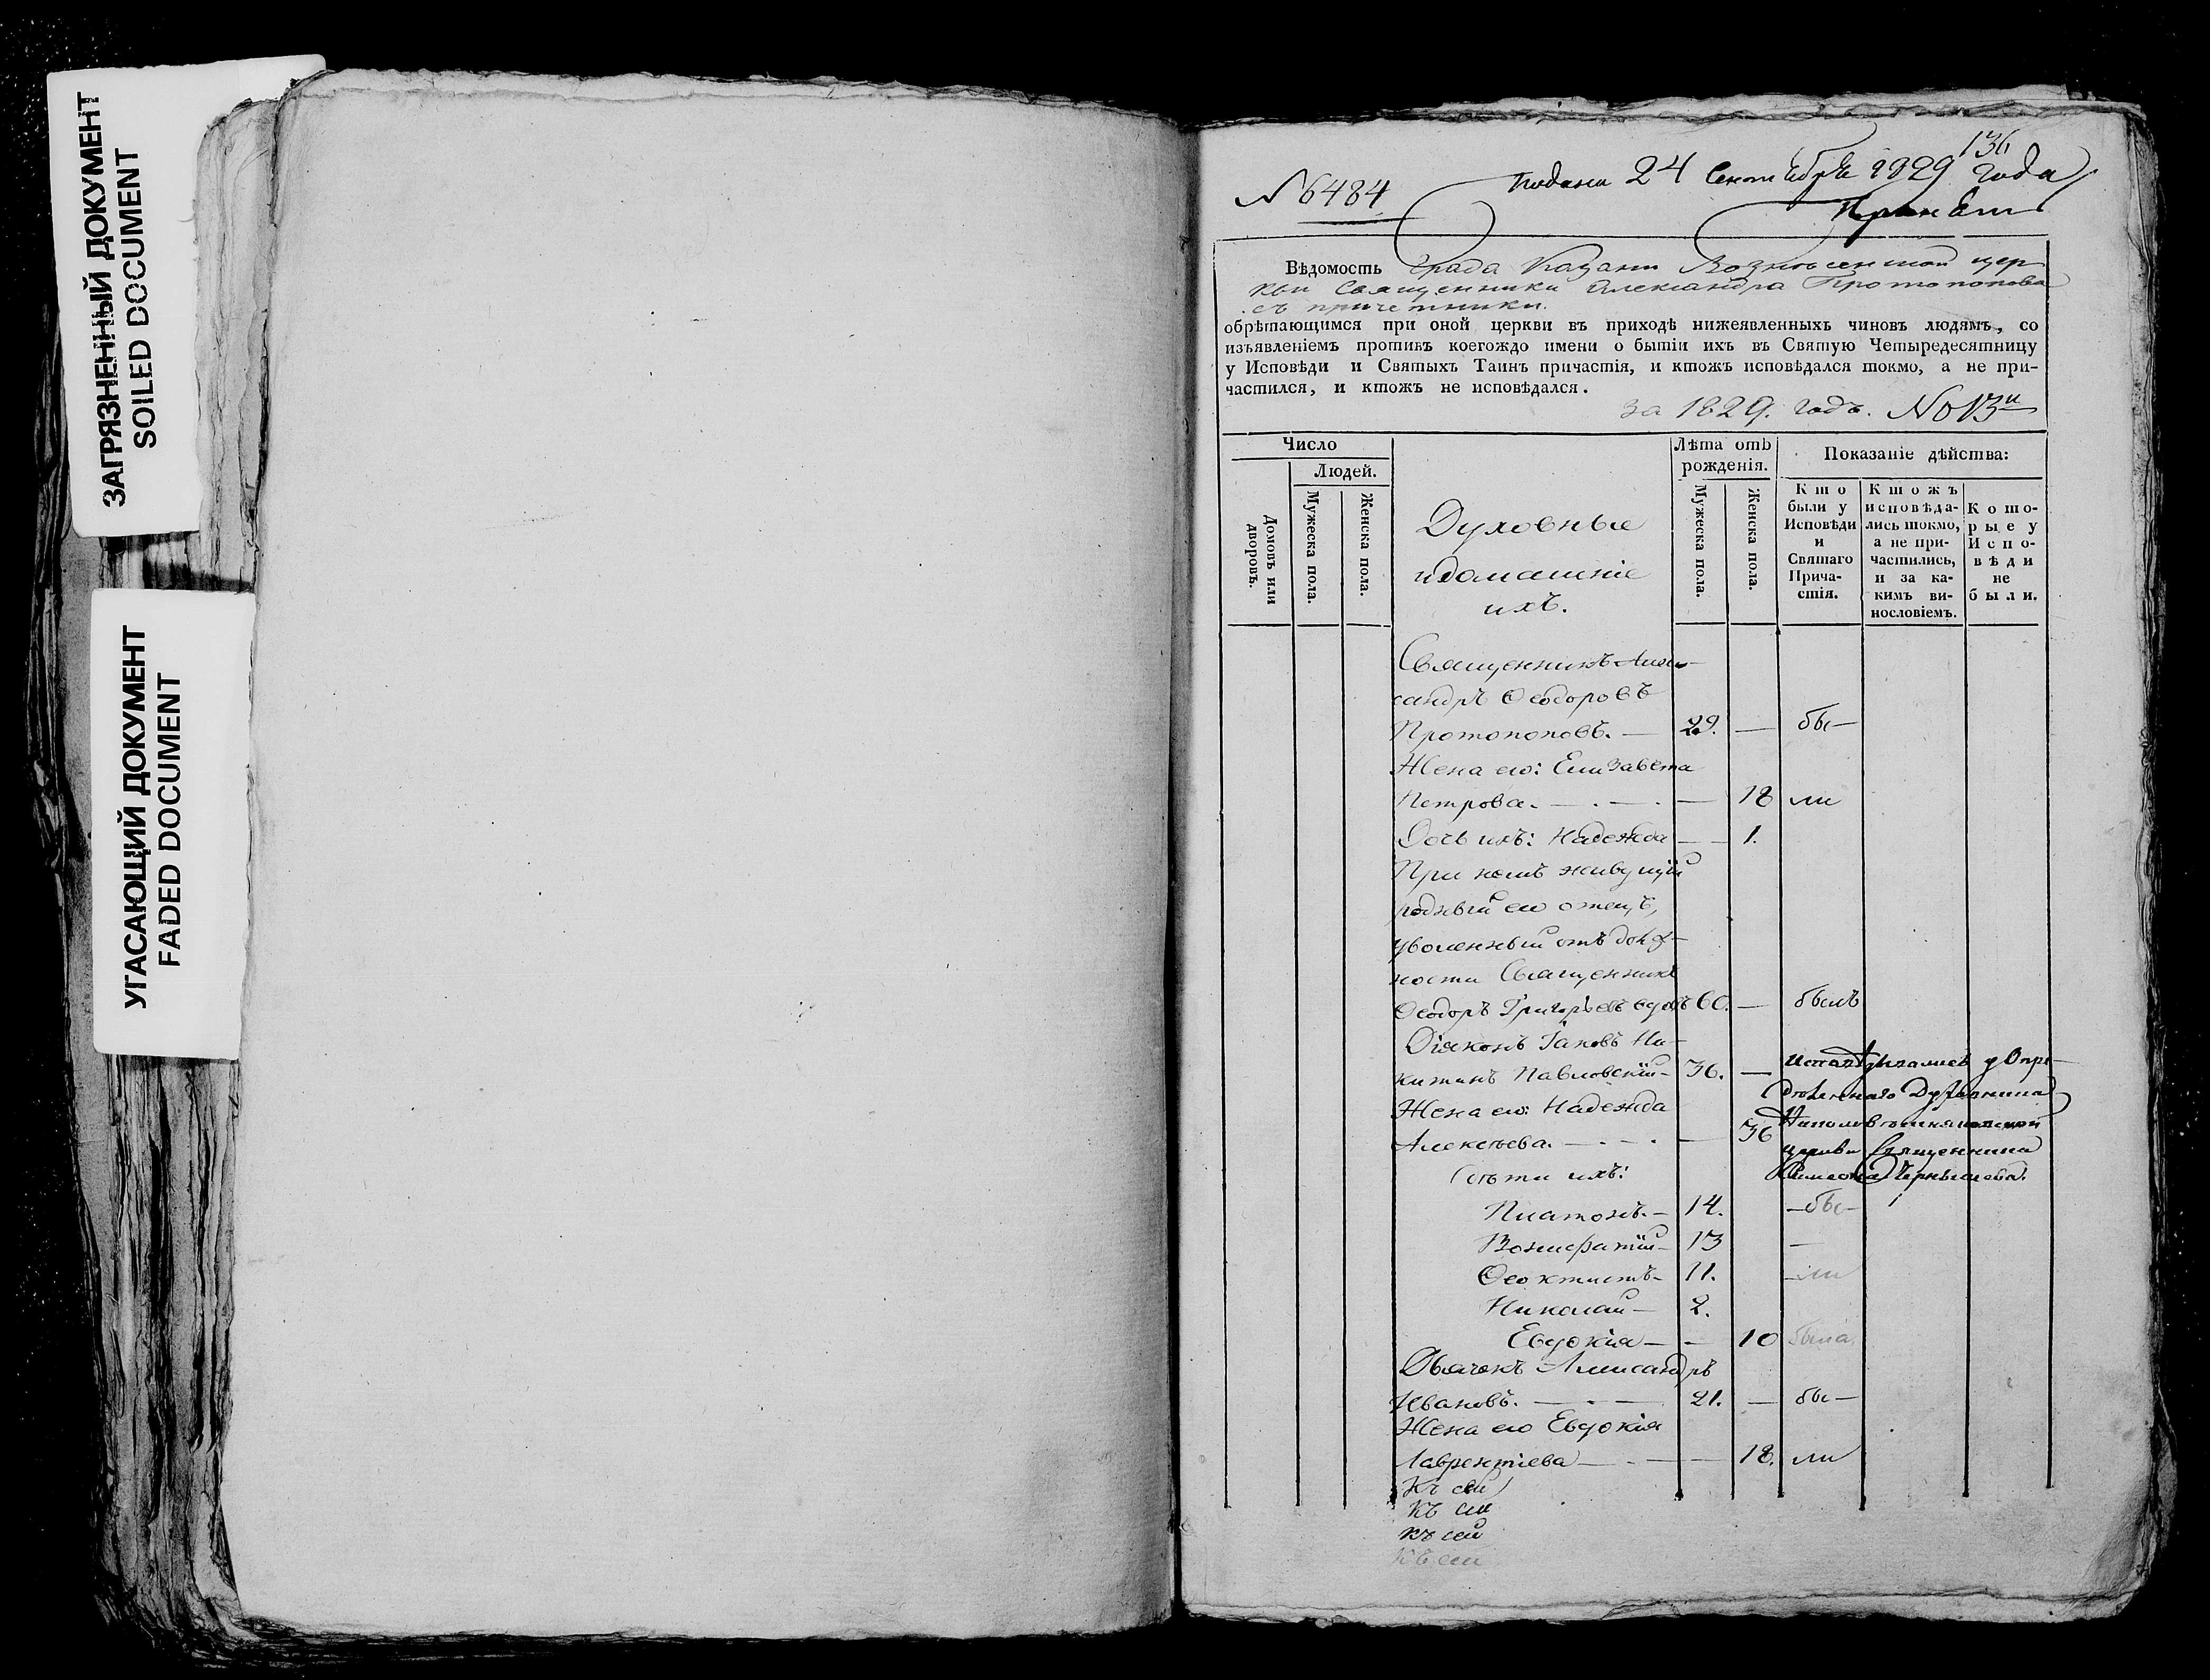 ЗАГРЯЗНЕННЫЙ ДОКУМЕНТ
SOILED DOCUMENT
УГАСАЮЩИЙ ДОКУМЕНТ
FADED DOCUMENT
136
№ 6484
Подана 24 Сентября 1829 года
Вѣдомость Града Казани Вознесенской цер
кви Священника Александра Протопопова
съ причетники.
обрѣтающимся при оной церкви въ приходѣ нижеявленныхъ чиновъ людямъ, со
изъявленіемъ противъ коегождо имени о бытіи ихъ въ Святую Четыредесятницу
у Исповѣди и Святыхъ Таинъ причастія, и ктожъ исповѣдался токмо, а не при-
частился, и ктожъ не исповѣдался.
за 1829. годъ. No 13й
Число
Людей.
Домовъ или дворовъ.
Мужеска пола.
Женска пола.
Духовные
и домашніе
ихъ.
Лѣта отъ
рожденія.
Мужеска пола.
Женска пола.
Показаніе дѣйства:
Кто
были у
Исповѣди
и
Святаго
Прича-
стія.
Ктожъ
исповѣда-
лись токмо,
а не при-
частились,
и за ка-
кимъ ви-
нословіемъ.
Кото-
рые у
Испо-
вѣди
не
были.
Священникъ Алек-
сандръ Ѳеодоровъ
Протопоповъ. — 29. — бы—
Жена его: Елизавета
Петрова. — . — . — 18 ли
Дочь ихъ: Надежда — — 1.
При немъ живущій
родный его отецъ,
уволенный отъ долж-
ности Священникъ
Ѳеодоръ Григорьевъ вдовъ 60. — былъ
Діаконъ Іаковъ Ни-
китинъ Павловскій — 36. — Исповѣдывались у Опре-
дѣленнаго Духовника
Жена его: Надежда
Алексѣева. — . — . — 36
церкви Священника
Симеона Чернышева.
Дѣти ихъ:
Платонъ. — 14. — бы—
Вонифатій — 13 —
Ѳеоктистъ — 11. — ли
Николай — 2.
Евдокія — — 10 была
Дьячокъ Александръ
Ивановъ. — . — 21. — бы—
Жена его Евдокія
Лаврентіева — . — — 18. ли
Къ сей
Къ сей
къ сей
Къ сей